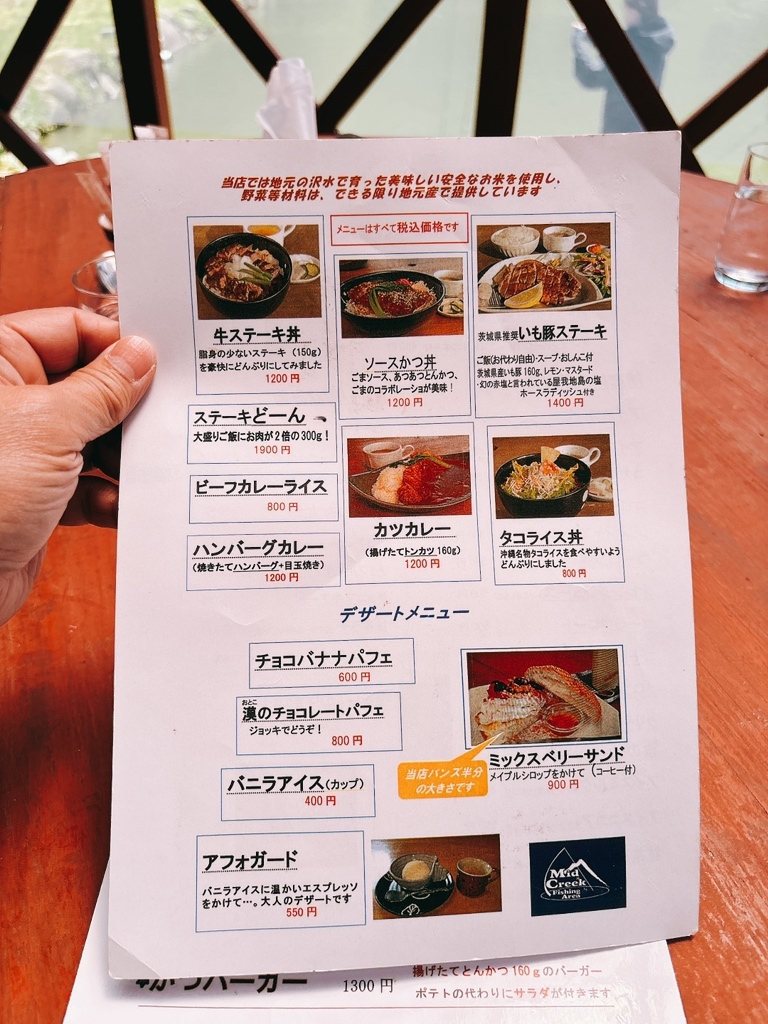 当店では地元の沢水で育った美味しい安全なお米を使用し、
野菜等材料は、できる限り地元産で提供しています
メニューはすべて税込価格です
牛ステーキ丼
脂身の少ないステーキ（150g）
を豪快にどんぶりにしてみました
1200 円
ソースかつ丼
ごまソース、あつあつとんかつ、
ごまのコラボレーショが美味！
1200 円
茨城県推奨いも豚ステーキ
ご飯(お代わり自由)・スープ・おしんこ付
茨城県産いも豚 160g、レモン・マスタード
・幻の赤塩と言われている屋我地島の塩
ホースラディッシュ付き
1400 円
ステーキどーん
大盛りご飯にお肉が２倍の300g！
1900 円
ビーフカレーライス
800 円
ハンバーグカレー
（焼きたてハンバーグ+目玉焼き）
1200 円
カツカレー
（揚げたてトンカツ 160g）
1200 円
タコライス丼
沖縄名物タコライスを食べやすいよう
どんぶりにしました
800 円
デザートメニュー
チョコバナナパフェ
600 円
おとこ
漢のチョコレートパフェ
ジョッキでどうぞ！
800 円
バニラアイス（カップ）
400 円
アフォガード
バニラアイスに温かいエスプレッソ
をかけて…。大人のデザートです
550 円
ミックスベリーサンド
メイプルシロップをかけて（コーヒー付）
900 円
当店バンズ半分
の大きさです
Mid
Creek
Fishing
Area
かつバーガー
1300 円
揚げたてとんかつ 160ｇのバーガー
ポテトの代わりにサラダが付きます